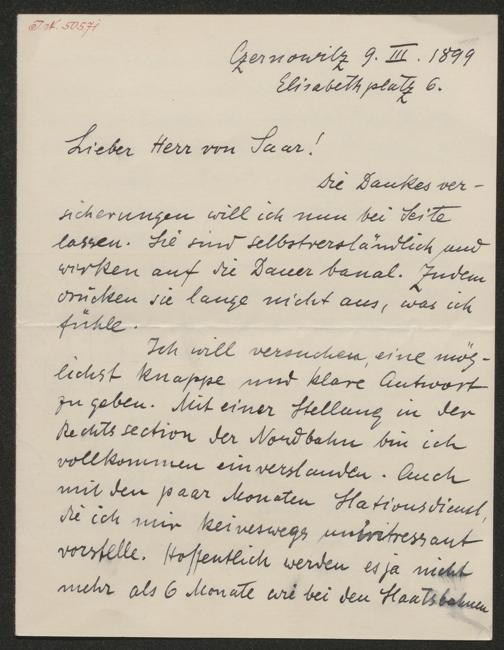 I.N. 50571
Czernowitz 9. III. 1899
Elisabethplatz 6.
Lieber Herr von Saar!
Die Dankesver-
sicherungen will ich nun bei Seite
lassen. Sie sind selbstverständlich und
wirken auf die Dauer banal. Zudem
drücken sie lange nicht aus, was ich
fühle.
Ich will versuchen, eine mög-
lichst knappe und klare Antwort
zu geben. Mit einer Stellung in der
Rechtssection der Nordbahn bin ich
vollkommen einverstanden. Auch
mit den paar Monaten Stationsdienst,
die ich mir keineswegs uninteressant
vorstelle. Hoffentlich werden es ja nicht
mehr als 6 Monate wie bei den Staatsbahnen